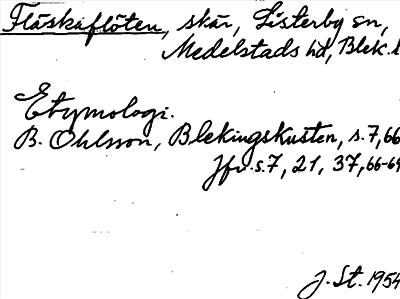 Fläskaflöten, skär, Listerby sn,
Medelstads hd, Blek.l
Etymologi.
B. Ohlsson, Blekingskusten, s.7,66
Jfr s.7, 21, 37, 66-69
J. St. 1954